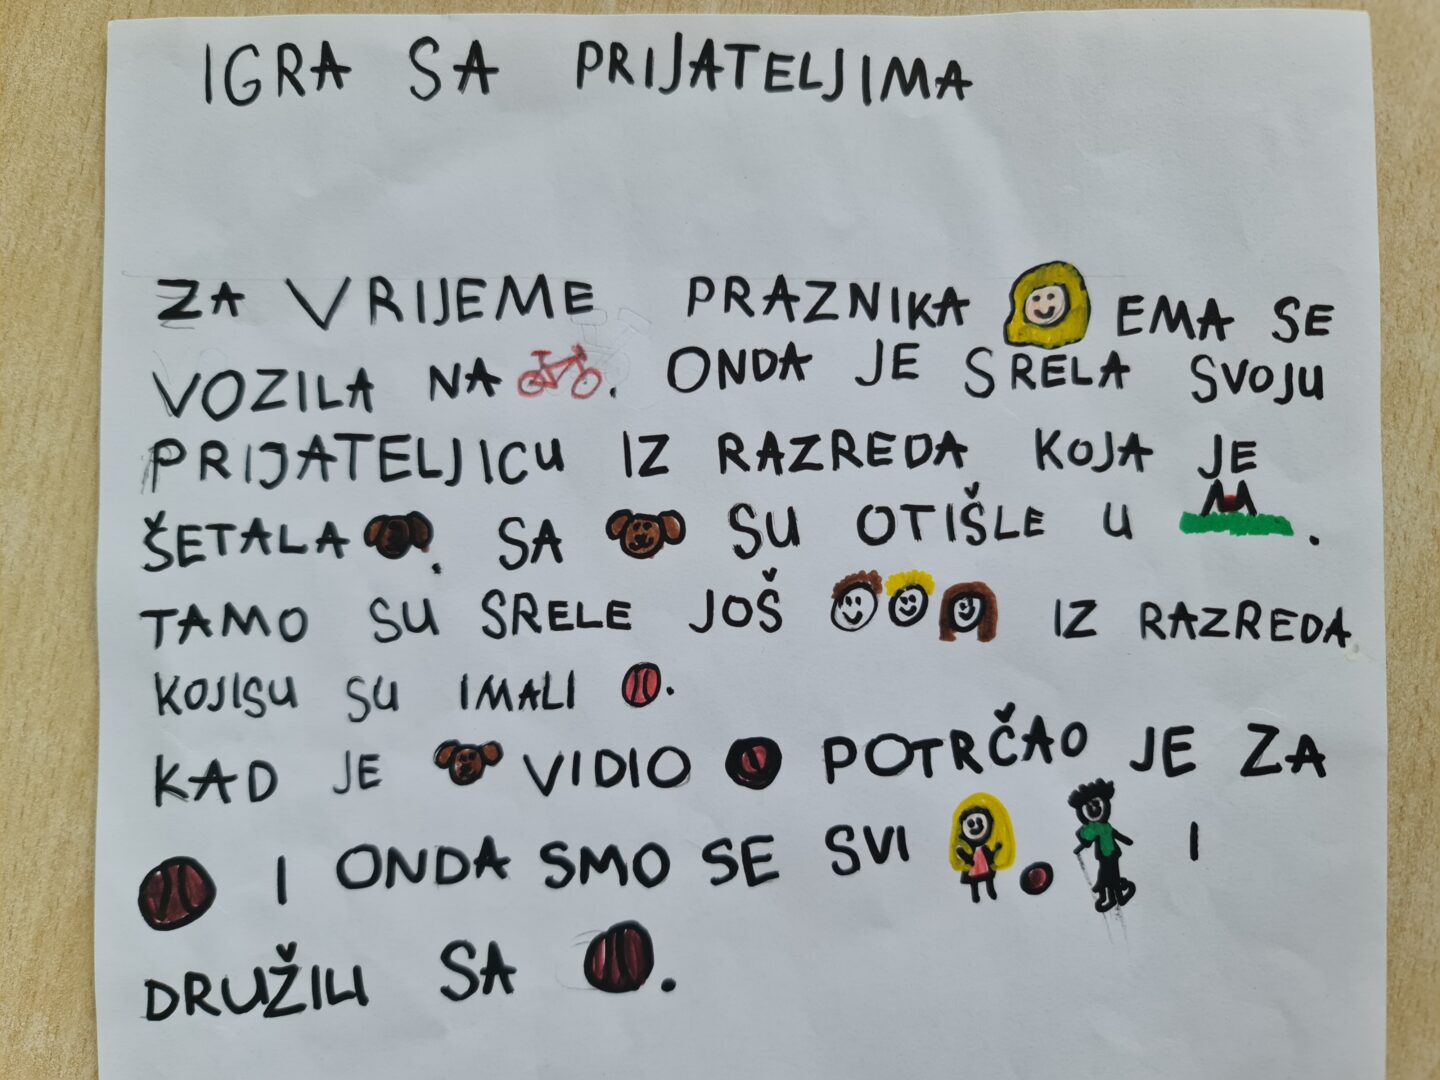 IGRA SA PRIJATELJIMA
ZA VRIJEME PRAZNIKA EMA SE
VOZILA NA . ONDA JE SRELA SVOJU
PRIJATELJICU IZ RAZREDA KOJA JE
ŠETALA . SA SU OTIŠLE U .
TAMO SU SRELE JOŠ IZ RAZREDA
KOJISU SU IMALI .
KAD JE VIDIO POTRČAO JE ZA
I ONDA SMO SE SVI I
DRUŽILI SA .